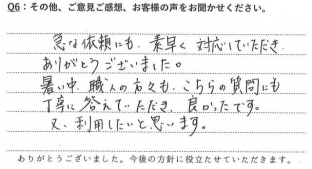 Q6：その他、ご意見ご感想、お客様の声をお聞かせください。
急な依頼にも、素早く対応していただき
ありがとうございました。
暑い中、職人の方々も、こちらの質問にも
丁寧に答えていただき、良かったです。
又、利用したいと思います。
ありがとうございました。今後の方針に役立たせていただきます。